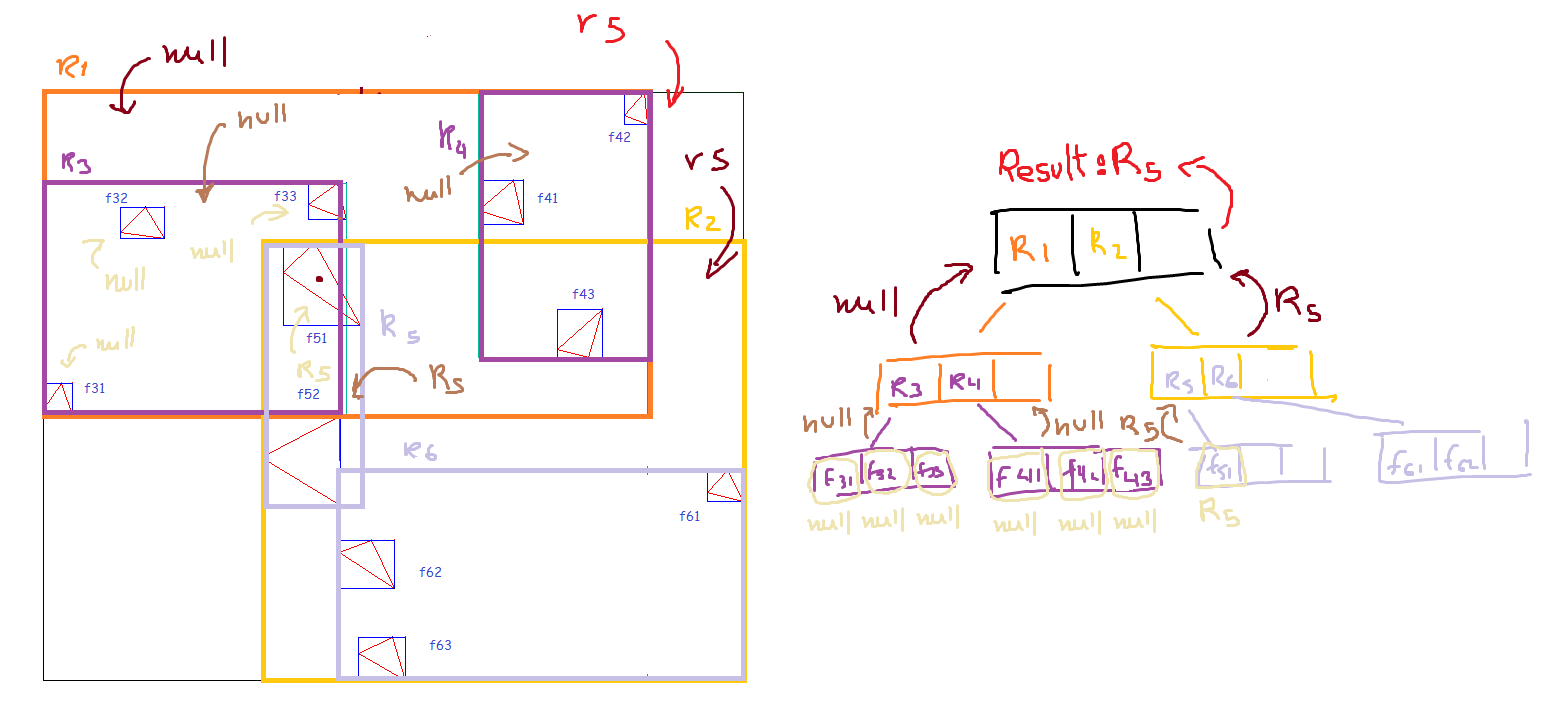 r5
R1
null
null
R4
f42
R3
null
r5
f32
f33
f41
R2
null
null
null
f43
R5
f51
null
R5
R5
f31
f52
R6
f61
f62
f63
Result: R5
R1 R2
null
R5
R3 R4
R5 R6
null
null
R5
f31 f32 f33
f41 f42 f43
f51
f61 f62
null null null
null null null
R5